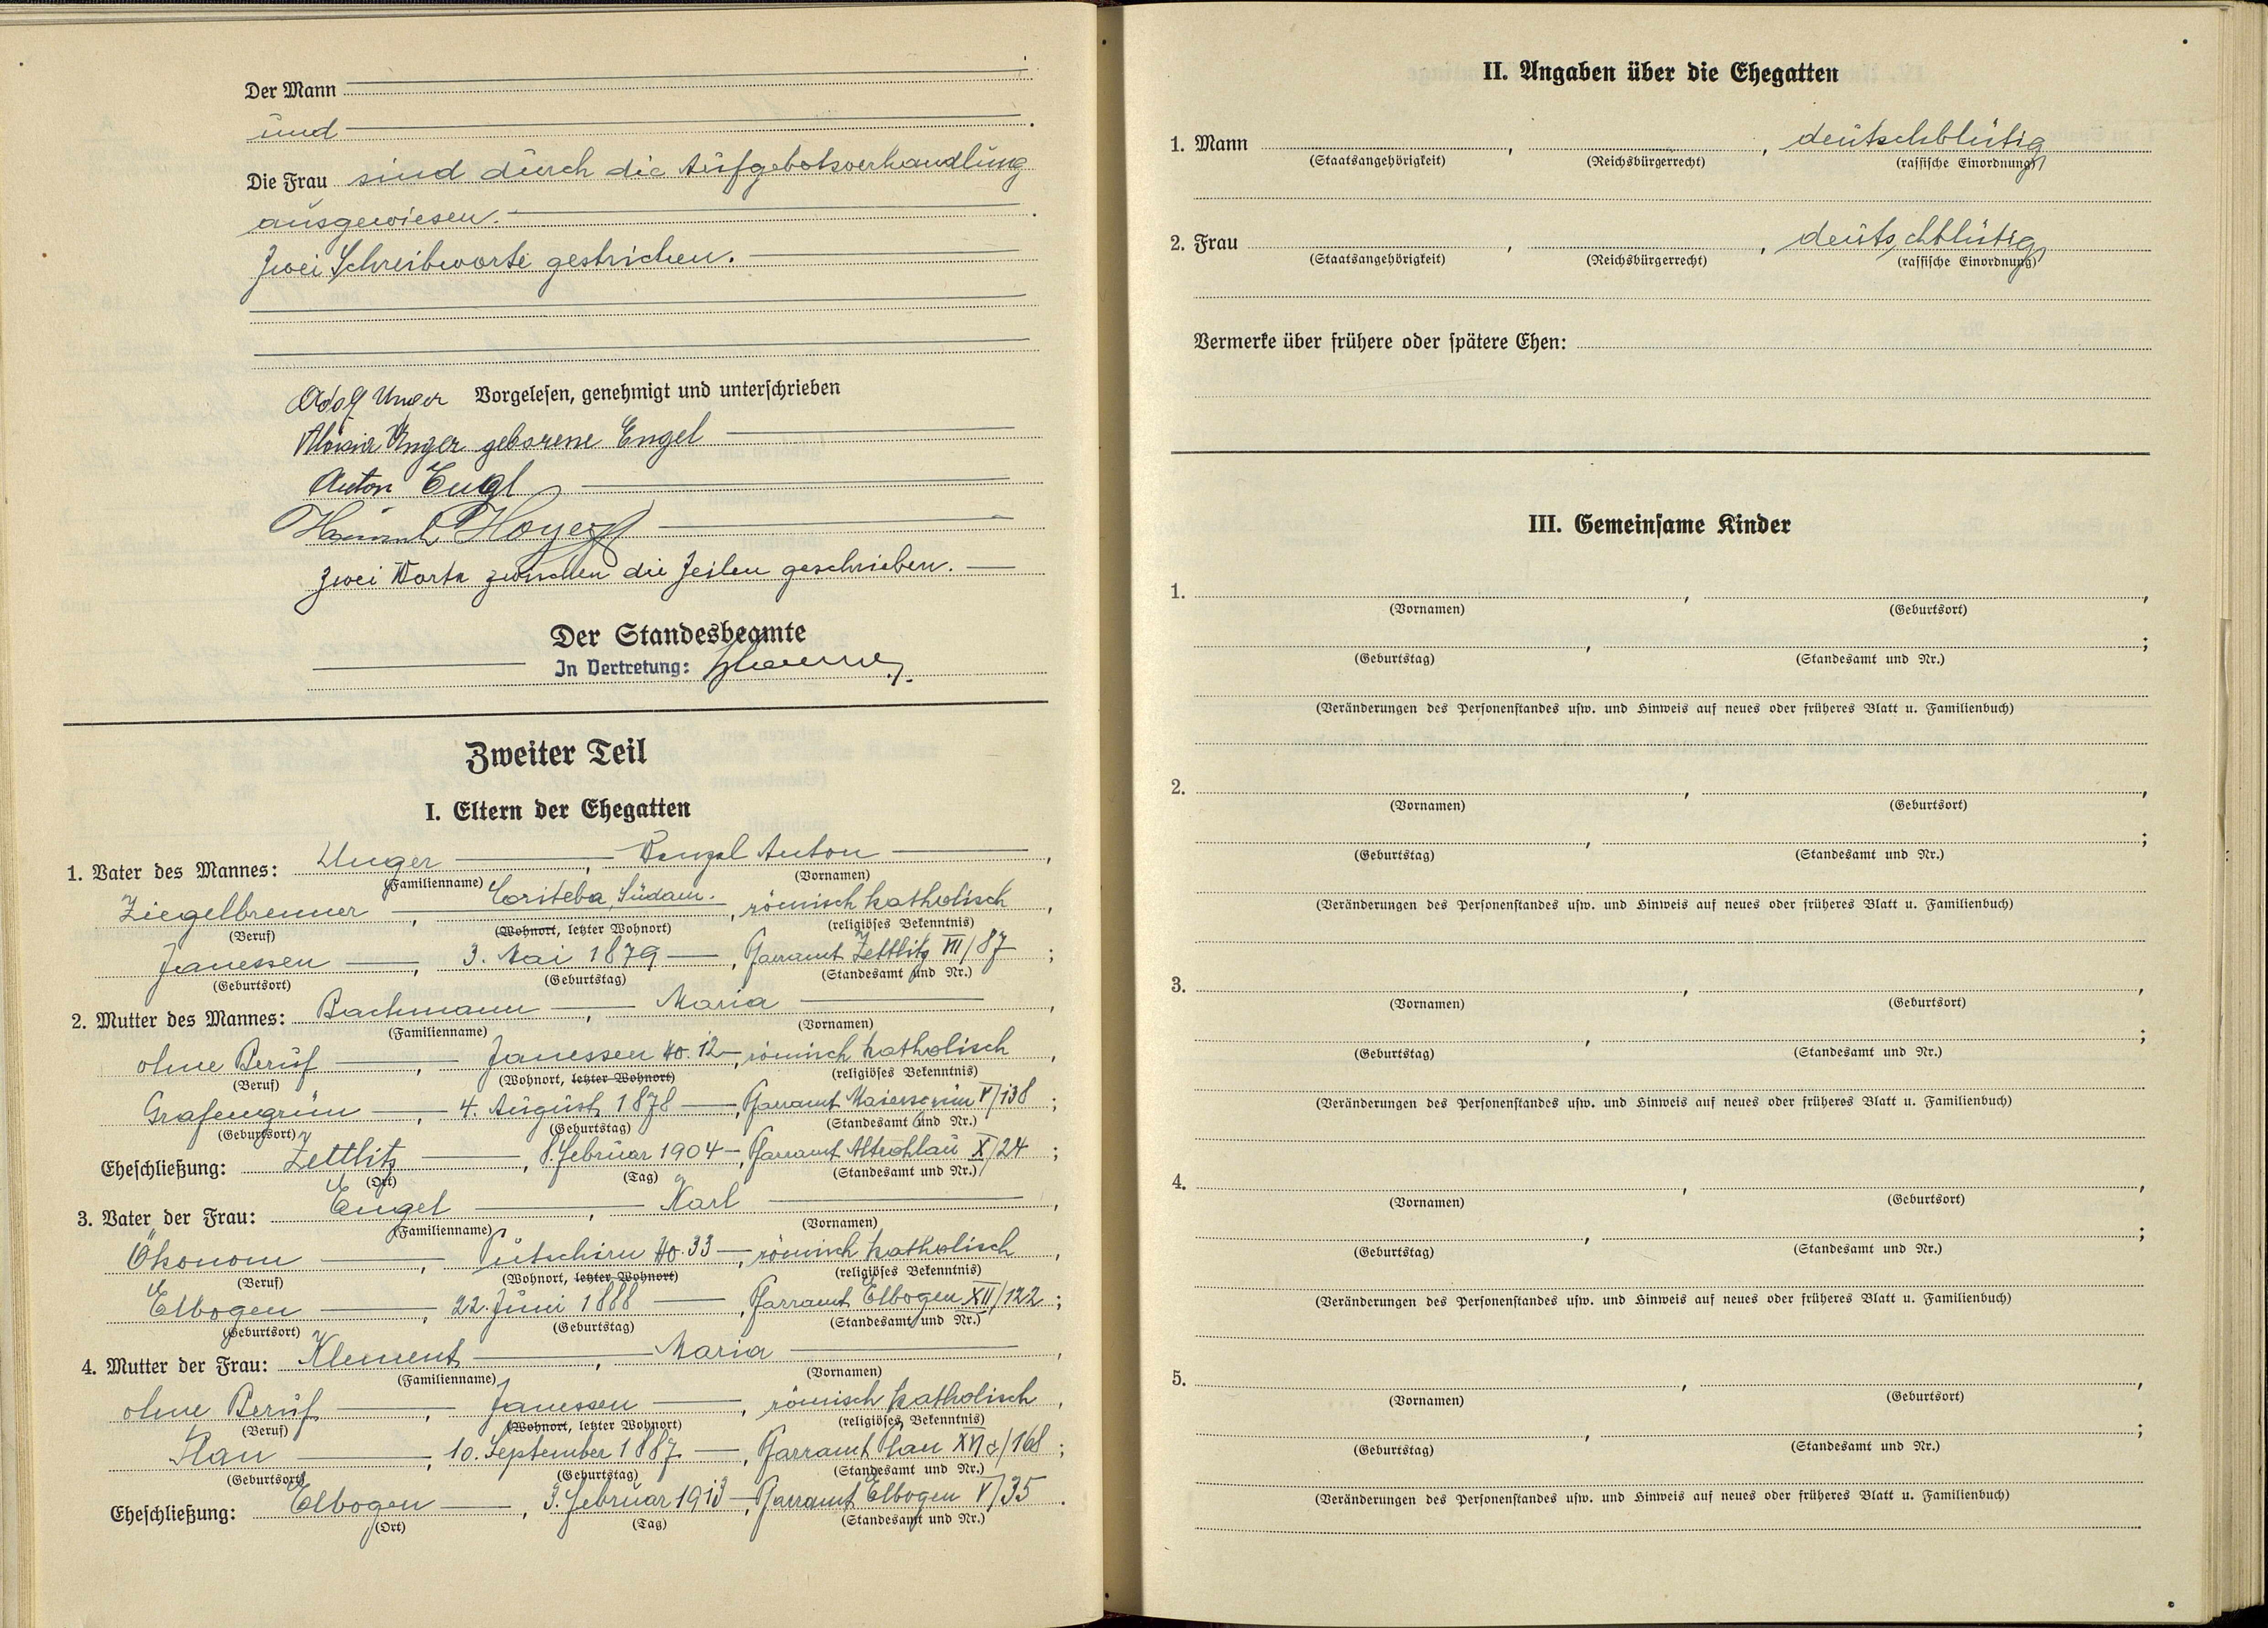 Der Mann
und
Die Frau sind durch die Aufgebotsverhandlung
ausgewiesen.
Zwei Schreibworte gestrichen.
Adolf Unger Vorgelesen, genehmigt und unterschrieben
Aloisia Unger geborene Engel
Anton Engl
Hoyer
Zwei Worte zwischen die Zeilen geschrieben.
Der Standesbeamte
In Vertretung:
Zweiter Teil
I. Eltern der Ehegatten
1. Vater des Mannes: Unger, Wenzel Anton,
(Familienname) (Vornamen)
Ziegelbrenner, Coriteba, Südam., römisch katholisch,
(Beruf) (Wohnort, letzter Wohnort) (religiöses Bekenntnis)
Janessen, 3. Mai 1879, Pfarramt Zettlitz VII/87;
(Geburtsort) (Geburtstag) (Standesamt und Nr.)
2. Mutter des Mannes: Bachmann, Maria,
(Familienname) (Vornamen)
ohne Beruf, Janessen No. 12, römisch katholisch,
(Beruf) (Wohnort, letzter Wohnort) (religiöses Bekenntnis)
Grafengrün, 4. August 1878, Pfarramt Maiersgrün V/138;
(Geburtsort) (Geburtstag) (Standesamt und Nr.)
Eheschließung: Zettlitz, 8. Februar 1904, Pfarramt Altrohlau X/24;
(Ort) (Tag) (Standesamt und Nr.)
3. Vater der Frau: Engel, Karl,
(Familienname) (Vornamen)
Ökonom, Putschirn No. 33, römisch katholisch,
(Beruf) (Wohnort, letzter Wohnort) (religiöses Bekenntnis)
Elbogen, 22. Juni 1888, Pfarramt Elbogen XII/122;
(Geburtsort) (Geburtstag) (Standesamt und Nr.)
4. Mutter der Frau: Klement, Maria,
(Familienname) (Vornamen)
ohne Beruf, Janessen, römisch katholisch,
(Beruf) (Wohnort, letzter Wohnort) (religiöses Bekenntnis)
Plan, 10. September 1887, Pfarramt Plan /168;
(Geburtsort) (Geburtstag) (Standesamt und Nr.)
Eheschließung: Elbogen, 3. Februar 1913, Pfarramt Elbogen V/35.
(Ort) (Tag) (Standesamt und Nr.)
II. Angaben über die Ehegatten
1. Mann , , deutschblütig
(Staatsangehörigkeit) (Reichsbürgerrecht) (rassische Einordnung)
2. Frau , , deutschblütig
(Staatsangehörigkeit) (Reichsbürgerrecht) (rassische Einordnung)
Vermerke über frühere oder spätere Ehen:
III. Gemeinsame Kinder
1. , ,
(Vornamen) (Geburtsort)
, ;
(Geburtstag) (Standesamt und Nr.)
(Veränderungen des Personenstandes usw. und Hinweis auf neues oder früheres Blatt u. Familienbuch)
2. , ,
(Vornamen) (Geburtsort)
, ;
(Geburtstag) (Standesamt und Nr.)
(Veränderungen des Personenstandes usw. und Hinweis auf neues oder früheres Blatt u. Familienbuch)
3. , ,
(Vornamen) (Geburtsort)
, ;
(Geburtstag) (Standesamt und Nr.)
(Veränderungen des Personenstandes usw. und Hinweis auf neues oder früheres Blatt u. Familienbuch)
4. , ,
(Vornamen) (Geburtsort)
, ;
(Geburtstag) (Standesamt und Nr.)
(Veränderungen des Personenstandes usw. und Hinweis auf neues oder früheres Blatt u. Familienbuch)
5. , ,
(Vornamen) (Geburtsort)
, ;
(Geburtstag) (Standesamt und Nr.)
(Veränderungen des Personenstandes usw. und Hinweis auf neues oder früheres Blatt u. Familienbuch)